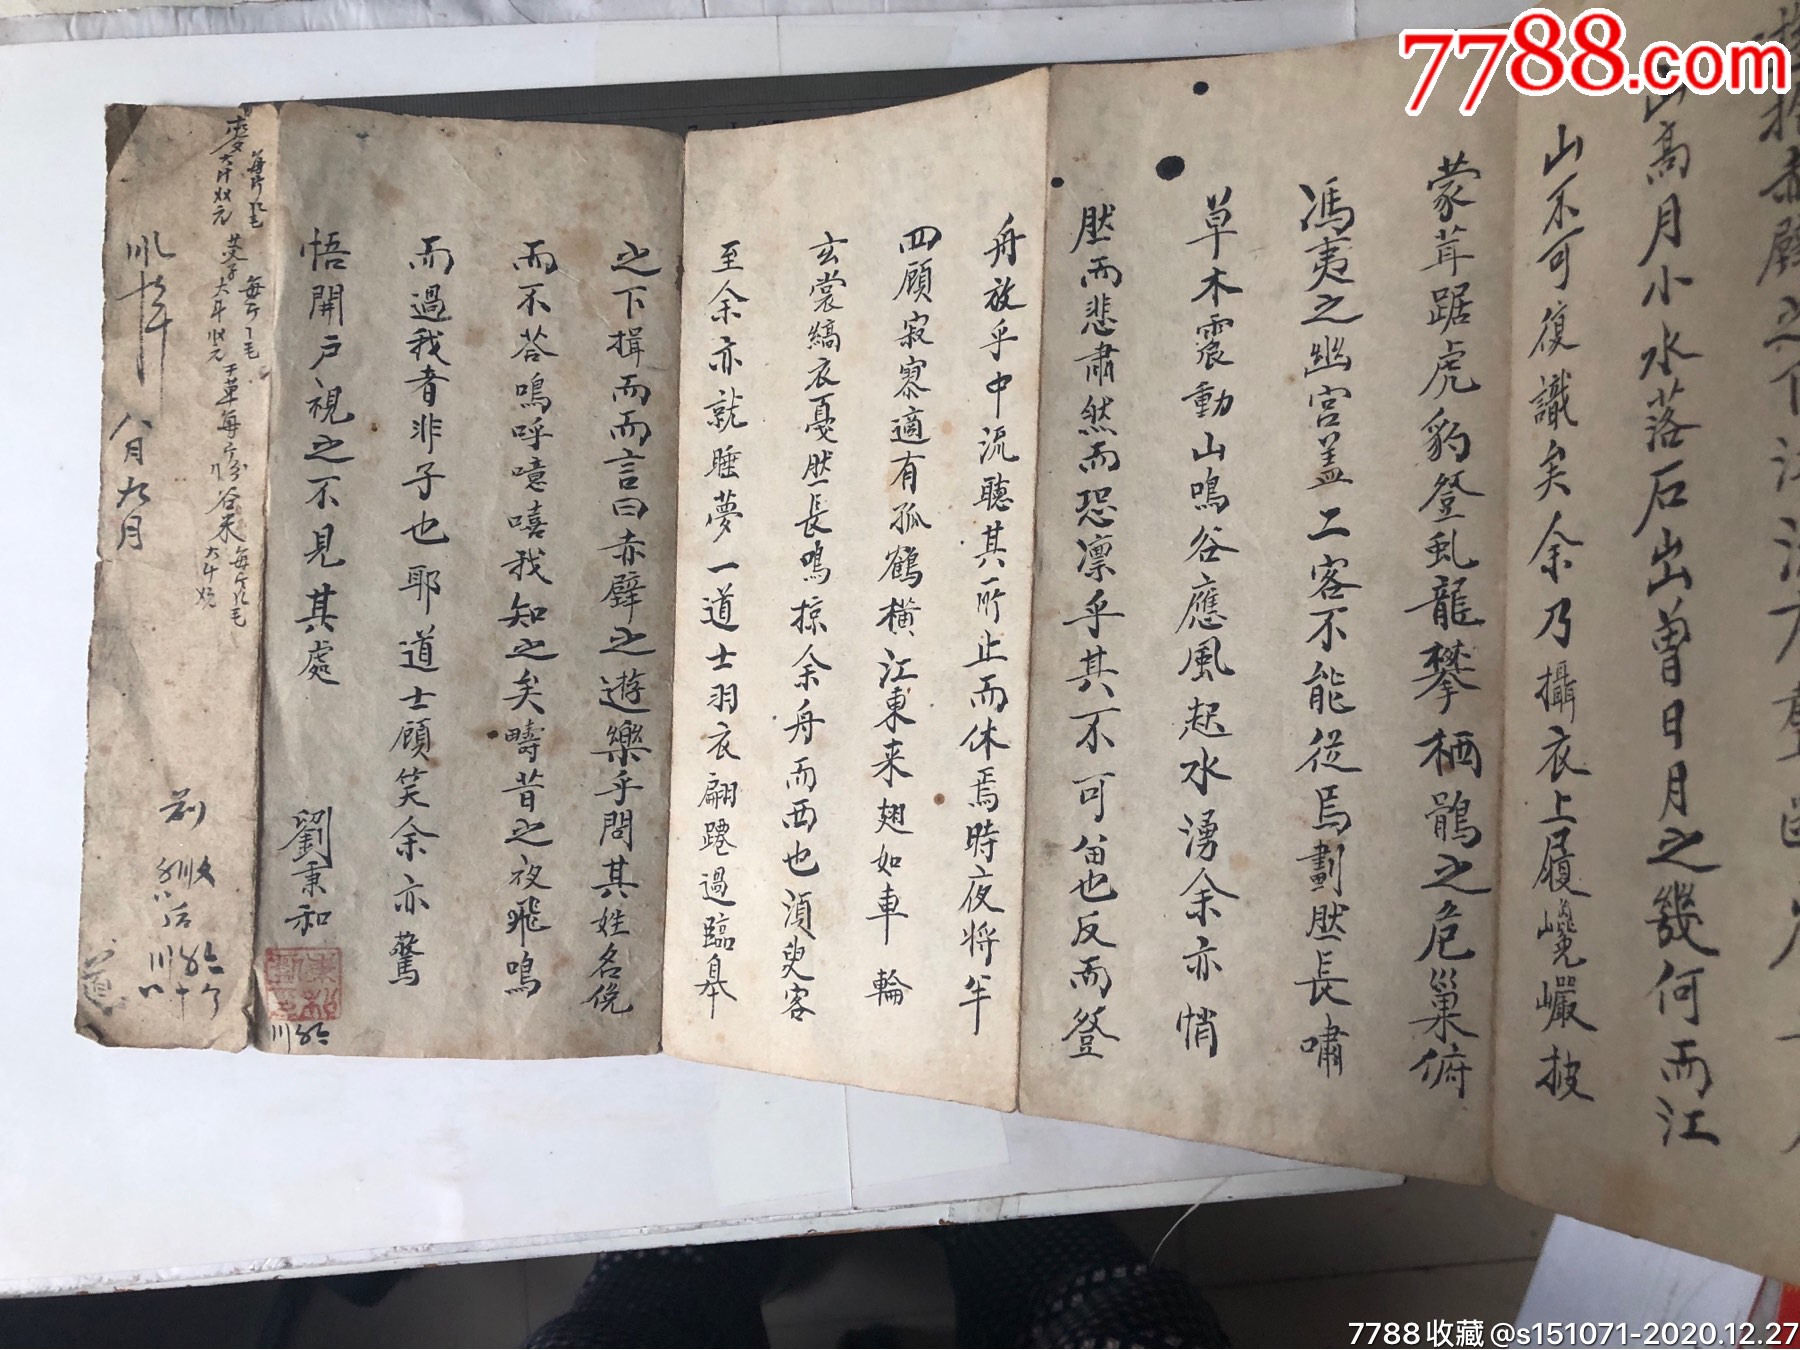 7788.com
赤壁之下江流有聲斷岸千尺
山高月小水落石出曾日月之幾何而江
山不可復識矣余乃攝衣上履巉巖披
蒙茸踞虎豹登虬龍攀栖鶻之危巢俯
馮夷之幽宮盖二客不能從焉劃肰長嘯
草木震動山鳴谷應風起水湧余亦悄
肰而悲肅然而恐凛乎其不可畄也反而登
舟放乎中流聽其所止而休焉時夜將半
四顧寂寥適有孤鶴橫江東来翅如車輪
玄裳縞衣戛肰長鳴掠余舟而西也湏臾客
至余亦就睡夢一道士羽衣翩躚過臨臯
之下揖而而言曰赤壁之遊樂乎問其姓名俛
而不荅嗚呼噫嘻我知之矣疇昔之夜飛鳴
而過我者非子也耶道士顧笑余亦驚
悟開戶視之不見其處
劉秉和
八月九月
7788收藏@s151071-2020.12.27